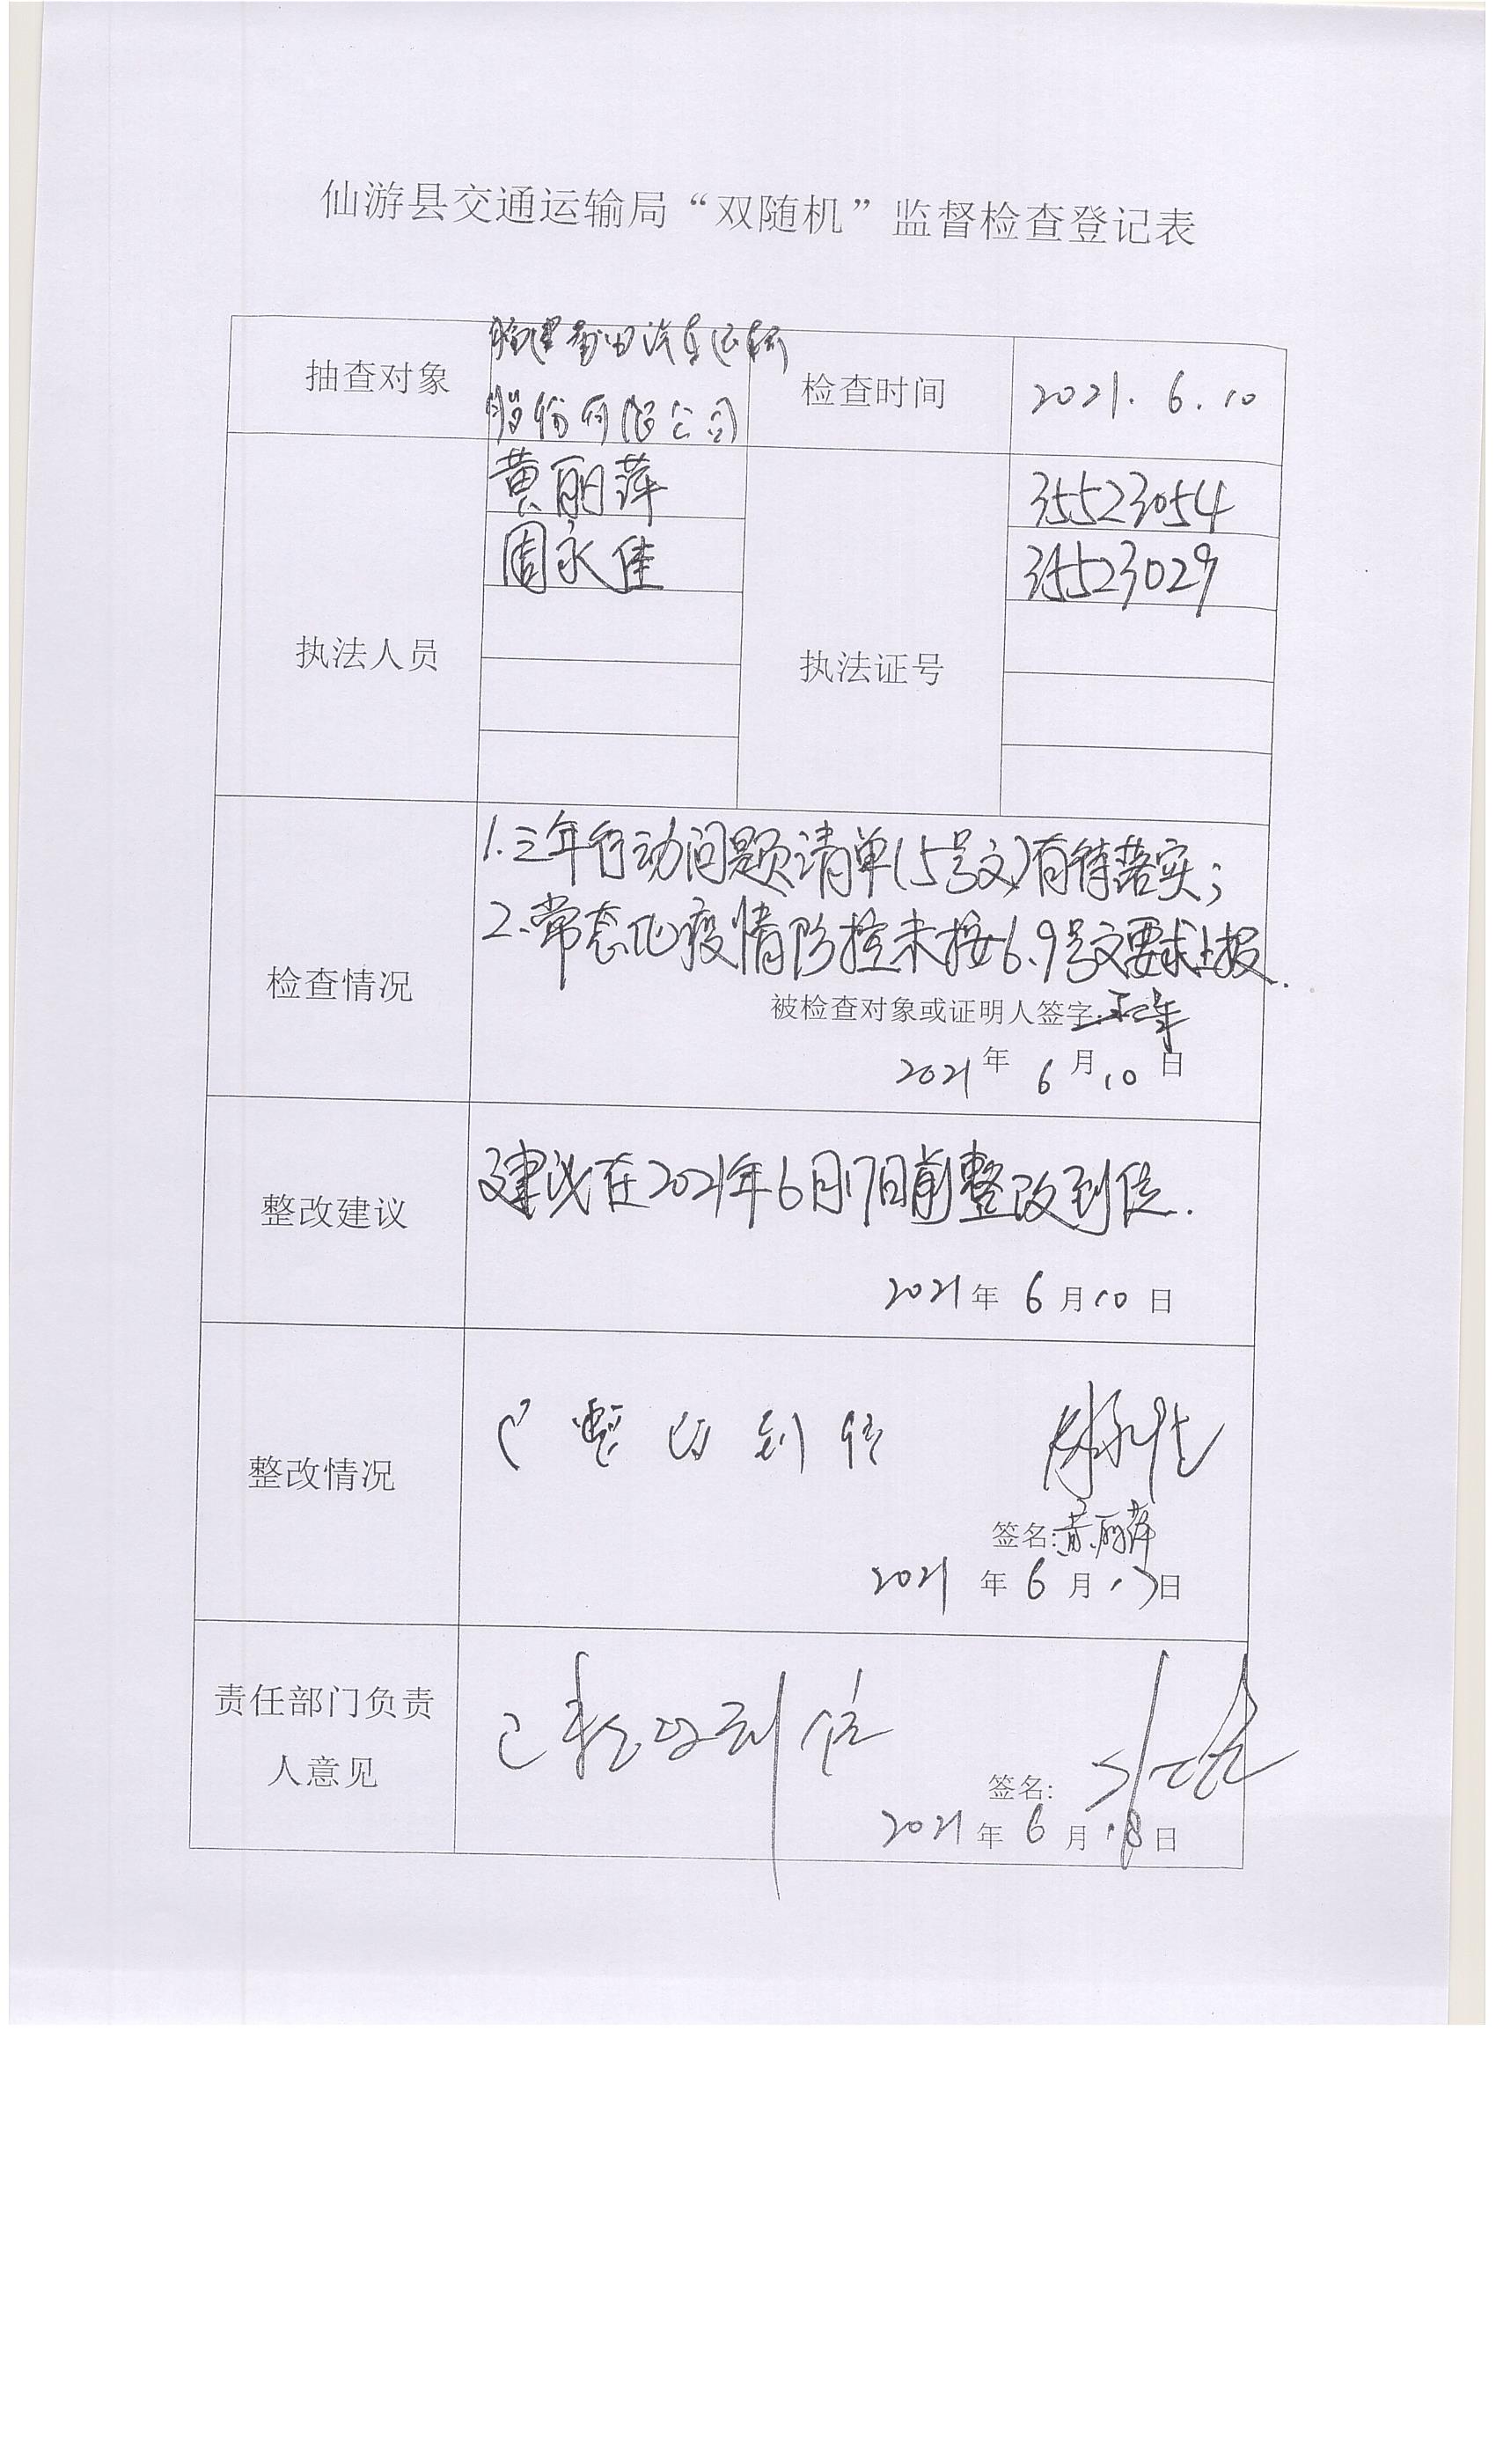 仙游县交通运输局“双随机”监督检查登记表
抽查对象
福建莆田汽车运输
股份有限公司
检查时间
2021.6.10
执法人员
黄丽萍
周永佳
执法证号
35523054
35523029
检查情况
1.三年行动问题清单(5号文)有待落实;
2.常态化疫情防控未按6.9号文要求上报.
被检查对象或证明人签字:
2021年6月10日
整改建议
建议在2021年6月17日前整改到位.
2021年6月10日
整改情况
已整改到位
周永佳
签名:黄丽萍
2021年6月17日
责任部门负责
人意见
已整改到位
签名:
2021年6月18日